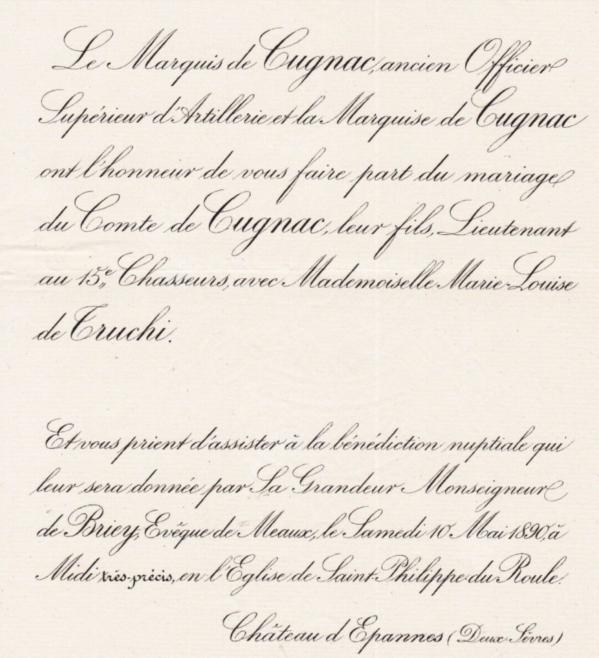 Le Marquis de Cugnac, ancien Officier
Supérieur d'Artillerie et la Marquise de Cugnac
ont l'honneur de vous faire part du mariage
du Comte de Cugnac, leur fils, Lieutenant
au 15e Chasseurs, avec Mademoiselle Marie-Louise
de Truchi.
Et vous prient d'assister à la bénédiction nuptiale qui
leur sera donnée par Sa Grandeur Monseigneur
de Briey, Evêque de Meaux, le Samedi 10 Mai 1890, à
Midi très-précis, en l'Eglise de Saint-Philippe-du-Roule.
Château d'Epannes (Deux-Sèvres)